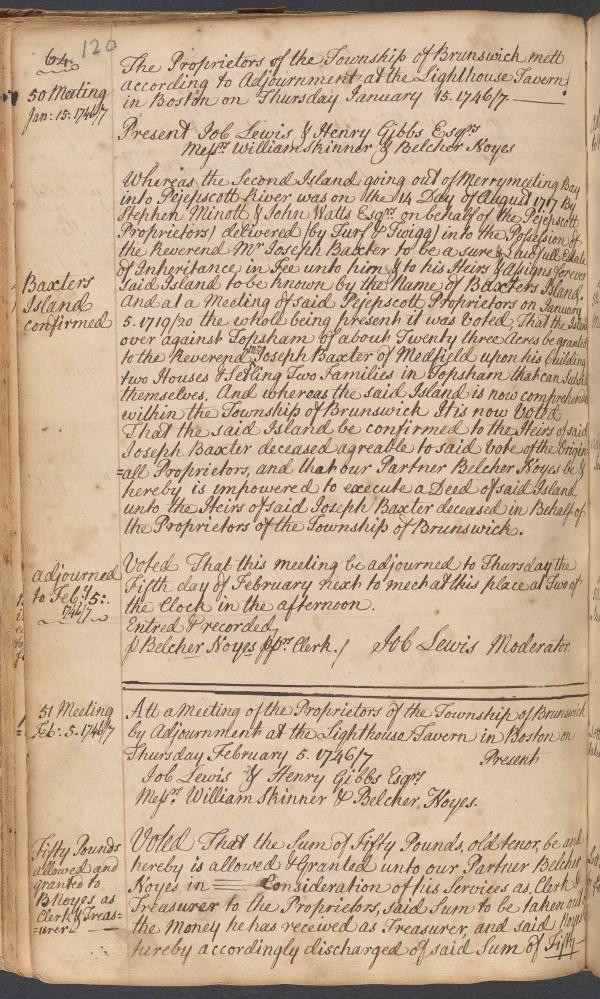 64.
120
50 Meeting
Jan: 15: 1746/7
The Proprietors of the Township of Brunswick mett
according to Adjournment at the Lighthouse Tavern
in Boston on Thursday January 15. 1746/7.
Present Job Lewis & Henry Gibbs Esqrs
Messrs William Skinner & Belcher Noyes
Whereas the Second Island going out of Merrymeeting Bay
into Pejepscott River was on the 14 Day of August 1717 By
Stephen Minott & John Watts Esqrs. on behalf of the Pejepscott
Proprietors) delivered (by Turf & Twigg) into the Possession of
the Reverend Mr Joseph Baxter to be a sure & Lawfull Estate
of Inheritance in Fee unto him & to his Heirs & Assigns forever
Said Island to be known by the Name of Baxters Island.
Baxters
Island
confirmed
And at a Meeting of said Pejepscott Proprietors on January
5. 1719/20 the whole being present it was Voted, That the Island
over against Topsham of about Twenty three Acres be granted
to the Reverend Mr Joseph Baxter of Medfield upon his building
two Houses & Setling Two Families in Topsham that can Subsist
themselves. And whereas the said Island is now comprehended
within the Township of Brunswick It is now Voted
That the said Island be confirmed to the Heirs of said
Joseph Baxter deceased agreable to said Vote of the Origin
=all Proprietors, and that our Partner Belcher Noyes be &
hereby is impowered to execute a Deed of said Island
unto the Heirs of said Joseph Baxter deceased in Behalf of
the Proprietors of the Township of Brunswick.
adjourned
to Feby 5:
1746/7
Voted That this meeting be adjourned to Thursday the
Fifth day of February next to meet at this place at Two of
the Clock in the afternoon.
Entred & recorded
p Belcher Noyes Clerk. / Job Lewis Moderator
51 Meeting
Feb: 5. 1746/7
Att a Meeting of the Proprietors of the Township of Brunswick
by Adjournment at the Lighthouse Tavern in Boston on
Thursday February 5. 1746/7 Present
Job Lewis & Henry Gibbs Esqrs
Messrs. William Skinner & Belcher Noyes.
Fifty Pounds
allowed and
granted to
B Noyes as
Clerk & Treas=
=urer
Voted That the Sum of Fifty Pounds, old tenor, be and
hereby is allowed & Granted unto our Partner Belcher
Noyes in Consideration of his Services as Clerk &
Treasurer to the Proprietors, said Sum to be taken out
the Money he has received as Treasurer, and said Noyes
hereby accordingly discharged of said Sum of Fifty